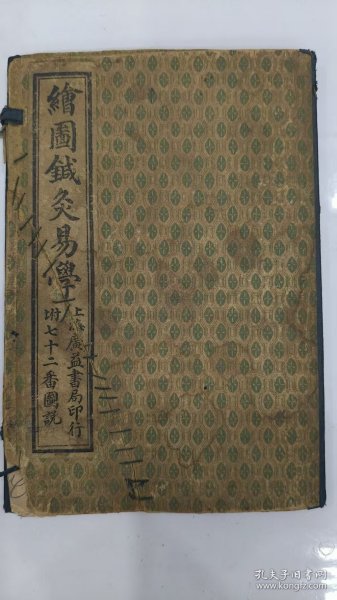 繪圖鍼灸易學
上海廣益書局印行
坿七十二番圖說
孔夫子旧书网